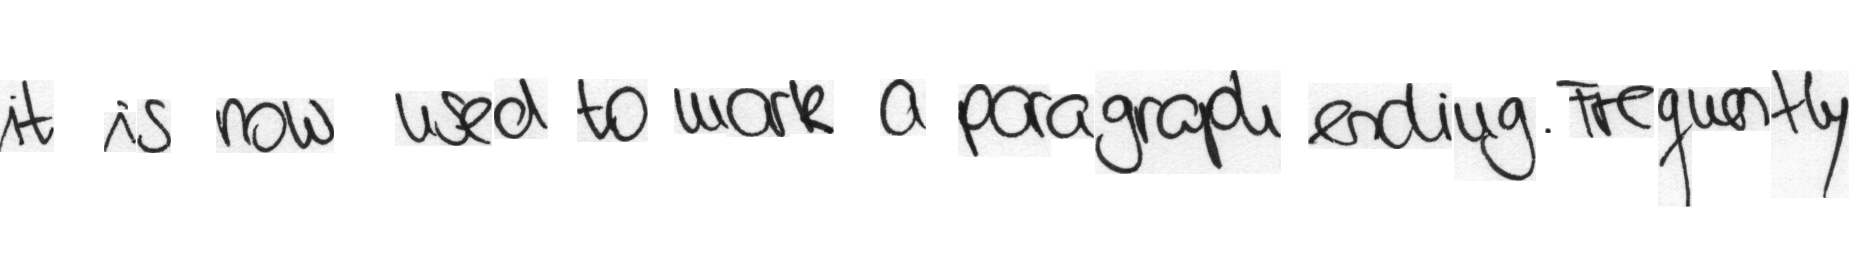 it is now used to mark a paragraph ending. Frequently